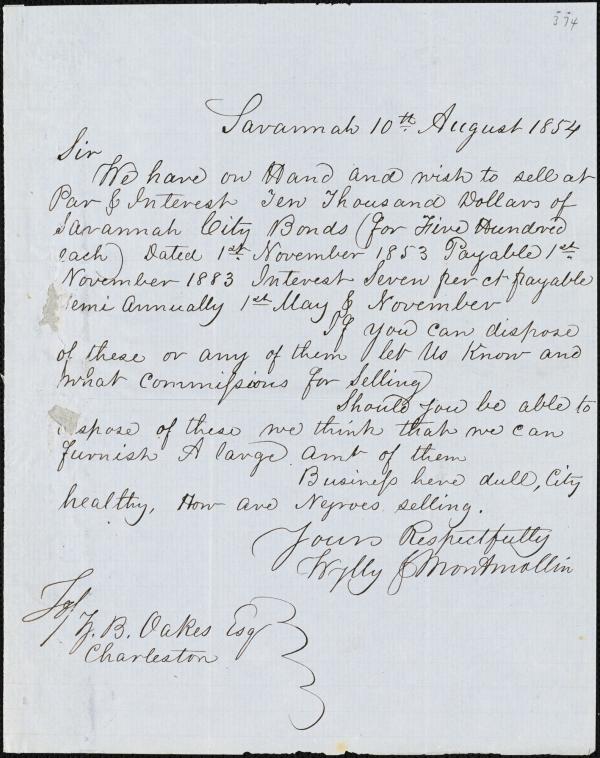 374
Savannah 10th August 1854
Sir
We have on Hand and wish to sell at
Par & Interest Ten Thousand Dollars of
Savannah City Bonds (for Five Hundred
each) Dated 1st November 1853 Payable 1st
November 1883 Interest Seven per ct payable
Semi Annually 1st May & November
If you can dispose
of these or any of them let us Know and
what commissions for Selling
Should you be able to
dispose of these we think that we can
furnish A large amt of them
Business here dull, City
healthy, How are Negroes selling.
Yours Respectfully
Wylly & Montmollin
To/
Z. B. Oakes Esq
Charleston